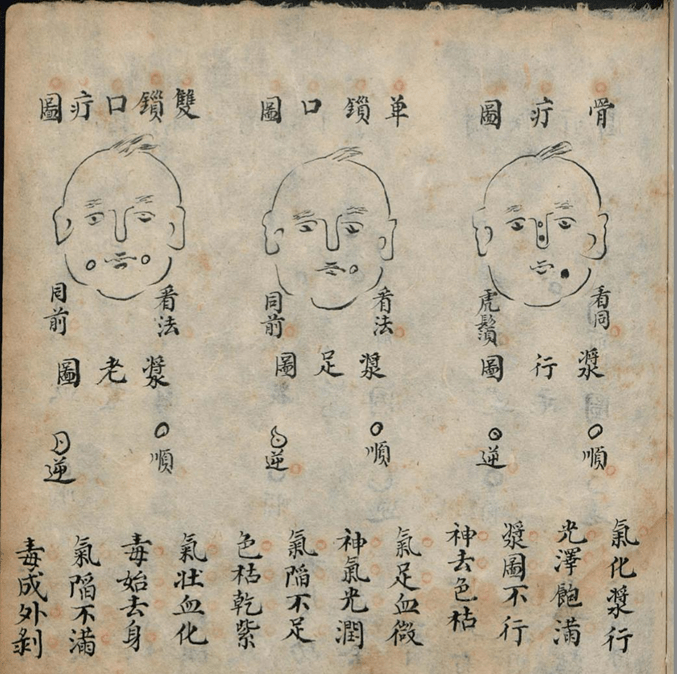 骨疔圖
看同
虎鬚
漿行圖
順
逆
氣化漿行
光澤飽滿
漿圖不行
神去色枯
单鎖口圖
看法
同前
漿足圖
順
逆
氣足血微
神氣光潤
氣陷不足
色枯乾紫
雙鎖口疔圖
看法
同前
漿老圖
順
逆
氣壯血化
毒始去身
氣陷不滿
毒成外剥